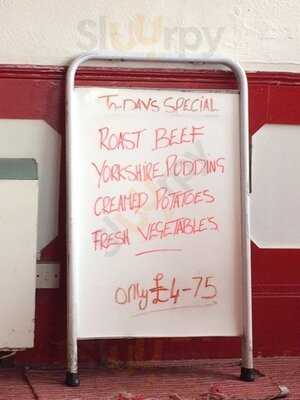 Sluurpy
TODAYS SPECIAL
ROAST BEEF
YORKSHIRE PUDDING
CREAMED POTATOES
FRESH VEGETABLES
ONLY £4-75